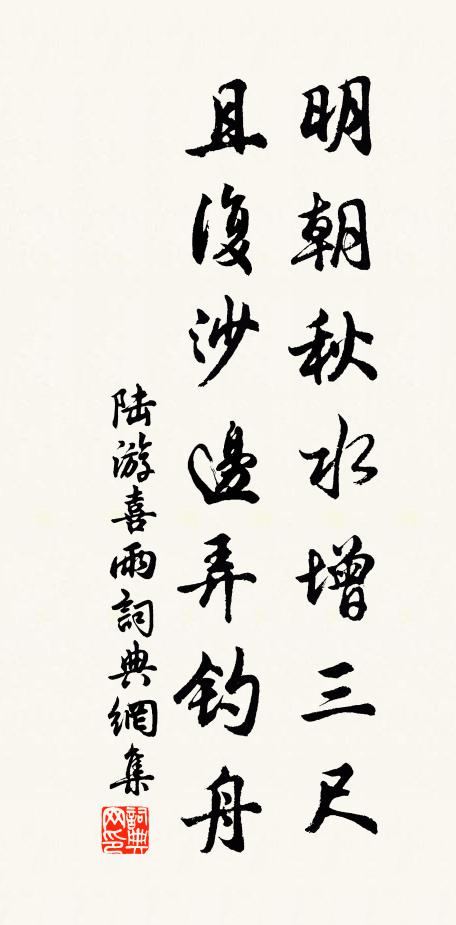 明朝秋水增三尺
且復沙邊弄钓舟
陆游喜雨詞典網集
詞典网印